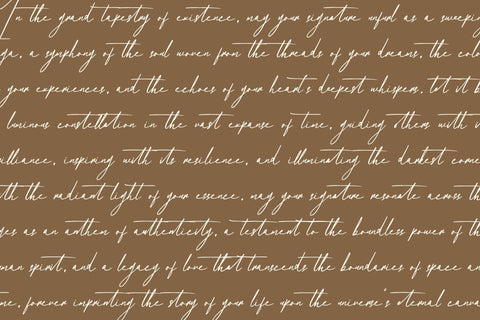 In the grand tapestry of existence, may your signature unfold as a sweeping
ga, a symphony of the soul woven from the threads of your dreams, the colo
your experiences, and the echoes of your heart's deepest whispers. Let it b
luminous constellation in the vast expanse of time, guiding others with
illiance, inspiring with its resilience, and illuminating the darkest corne
ith the radiant light of your essence, may your signature resonate across th
ges as an anthem of authenticity, a testament to the boundless power of th
man spirit, and a legacy of love that transcends the boundaries of space an
me, forever imprinting the story of your life upon the universe's eternal canva